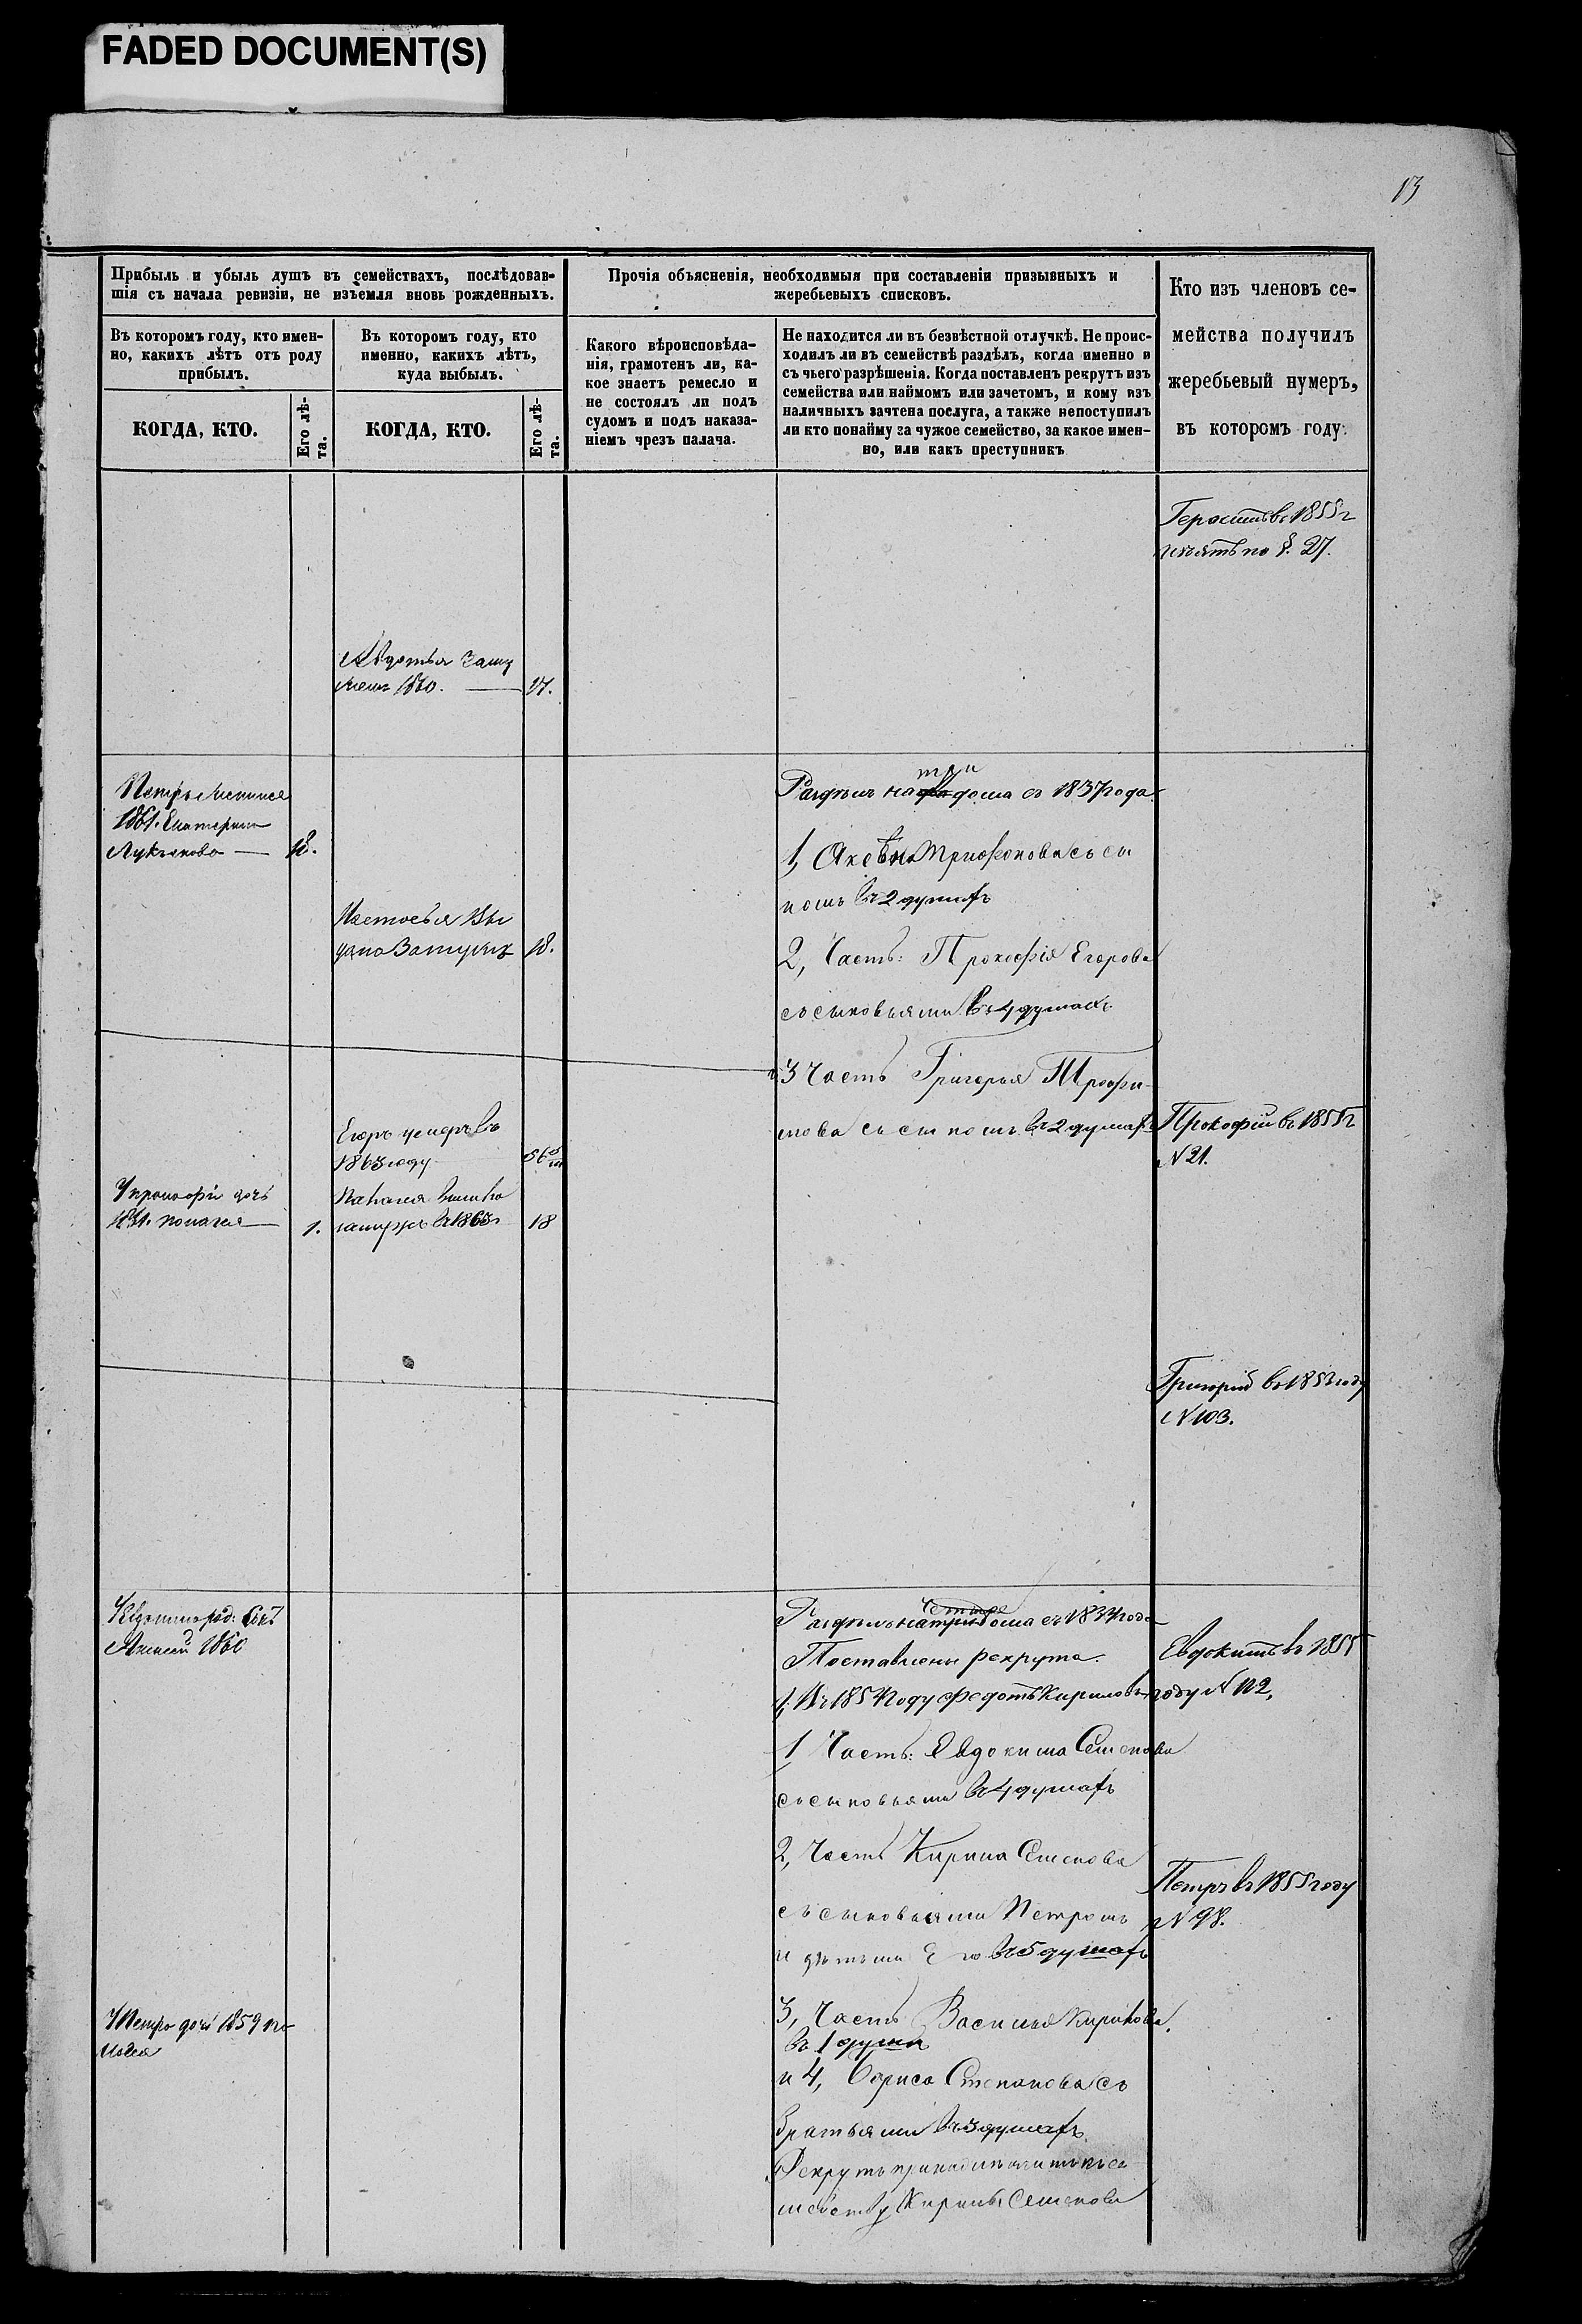 FADED DOCUMENT(S)
13
Прибыль и убыль душъ въ семействахъ, послѣдовав-
шія съ начала ревизіи, не изъемля вновь рожденныхъ.
Въ которомъ году, кто имен-
но, какихъ лѣтъ отъ роду
прибылъ.
КОГДА, КТО.
Его лѣ-
та.
Въ которомъ году, кто
именно, какихъ лѣтъ,
куда выбылъ.
КОГДА, КТО.
Его лѣ-
та.
Прочія объясненія, необходимыя при составленіи призывныхъ и
жеребьевыхъ списковъ.
Какого вѣроисповѣда-
нія, грамотенъ ли, ка-
кое знаетъ ремесло и
не состоялъ ли подъ
судомъ и подъ наказа-
ніемъ чрезъ палача.
Не находится ли въ безвѣстной отлучкѣ. Не проис-
ходилъ ли въ семействѣ раздѣлъ, когда именно и
съ чьего разрѣшенія. Когда поставленъ рекрутъ изъ
семейства или наймомъ или зачетомъ, и кому изъ
наличныхъ зачтена послуга, а также непоступилъ
ли кто понайму за чужое семейство, за какое имен-
но, или какъ преступникъ
Кто изъ членовъ се-
мейства получилъ
жеребьевый нумеръ,
въ которомъ году.
въ 1855 г
изъятъ по §. 27.
Авдотья заму
жемъ 1860. 27.
Петръ женился
1861. Екатерина
Лукьянова 18.
Настасья Вы
дана Замужъ 18.
три
Раздѣлъ на дома съ 1837 года
1, Трифонова съ сы
номъ въ 2 душахъ
2, Часть: Прокофія Егорова
съ сыновьями въ 4 душахъ
3 Часть Григорья Трофи-
мова съ сыномъ въ 2 душахъ
Егоръ умеръ въ
1863 году 56
Прокофій въ 1855 г
N 21.
У Прокофія дочь
Пелагея 1.
замужъ въ 1863 г 18
Григорій въ 1853 году
N 103.
У Евдокима род: сынъ
Алексей 1860
четыре
Раздѣлъ на три дома съ 1834 года
Поставлены рекрута.
1, Въ 1854 году Федотъ Кириловъ
1 Часть: Евдокима Семенова
съ сыновьями въ 4 душахъ
2, Часть Кирила Семенова
съ сыновьями Петромъ
и дѣтьми Его въ 5 душахъ
3, Часть Василья Кирилова
въ 1 душѣ
и 4, Бориса Степанова съ
братьями въ 3 душахъ
Рекрутъ принадлежитъ къ се
мейству Кирилы Семенова
Евдокимъ въ 1855
году N 112,
Петръ въ 1855 году
N 98.
У Петра дочь 1859 Пе
лагея